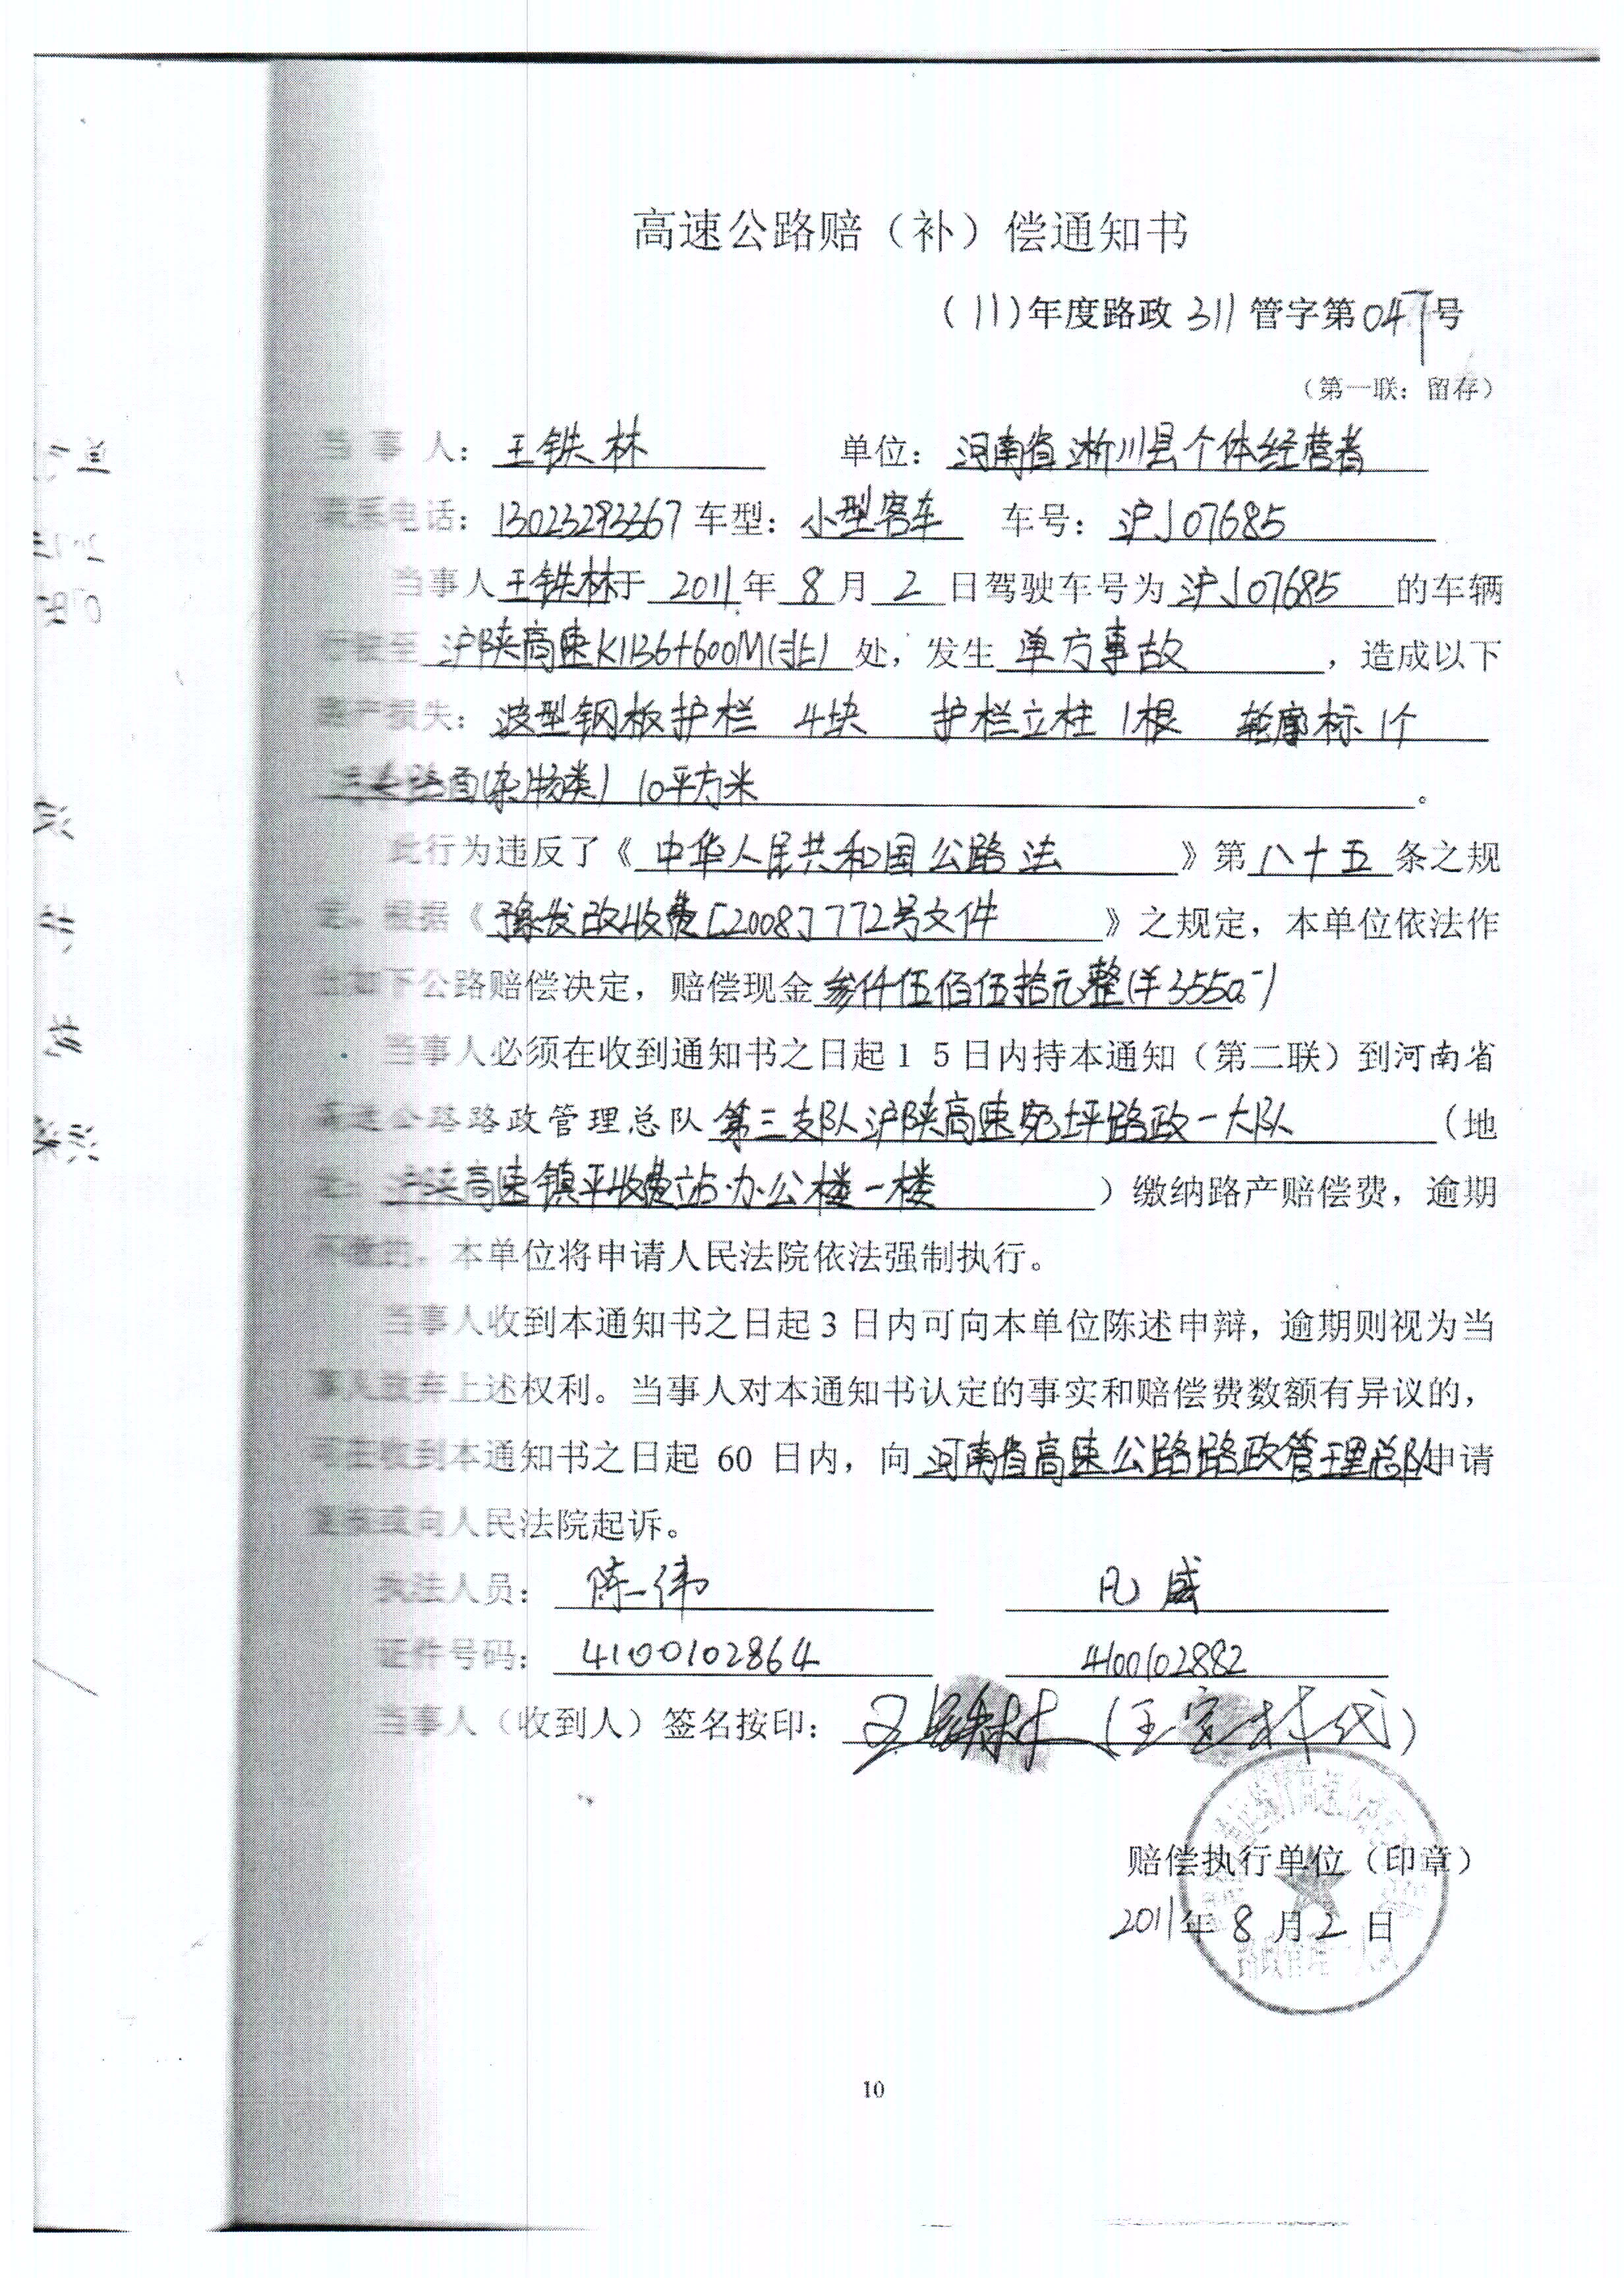 高速公路赔（补）偿通知书
（11）年度路政311管字第047号
（第一联：留存）
当事人：王铁林 单位：河南省淅川县个体经营者
联系电话：13023293367 车型：小型客车 车号：沪J07685
当事人王铁林于2011年8月2日驾驶车号为沪J07685的车辆
行驶至沪陕高速K1136+600M(北)处，发生单方事故，造成以下
路产损失：波型钢板护栏 4块 护栏立柱1根 轮廓标1个
路面(杂物类) 10平方米。
此行为违反了《中华人民共和国公路法》第八十五条之规
定。根据《豫发改收费[2008]772号文件》之规定，本单位依法作
出如下公路赔偿决定，赔偿现金叁仟伍佰伍拾元整(¥3550.-)
当事人必须在收到通知书之日起15日内持本通知（第二联）到河南省
高速公路路政管理总队第三支队沪陕高速宛坪路政一大队（地
址：沪陕高速镇平收费站办公楼一楼）缴纳路产赔偿费，逾期
不缴的，本单位将申请人民法院依法强制执行。
当事人收到本通知书之日起3日内可向本单位陈述申辩，逾期则视为当
事人放弃上述权利。当事人对本通知书认定的事实和赔偿费数额有异议的，
可在收到本通知书之日起60日内，向河南省高速公路路政管理总队申请
复核或向人民法院起诉。
执法人员：陈一伟 凡盛
证件号码：4100102864 4100102882
当事人（收到人）签名按印：王铁林（王家林代）
赔偿执行单位（印章）
2011年8月2日
10